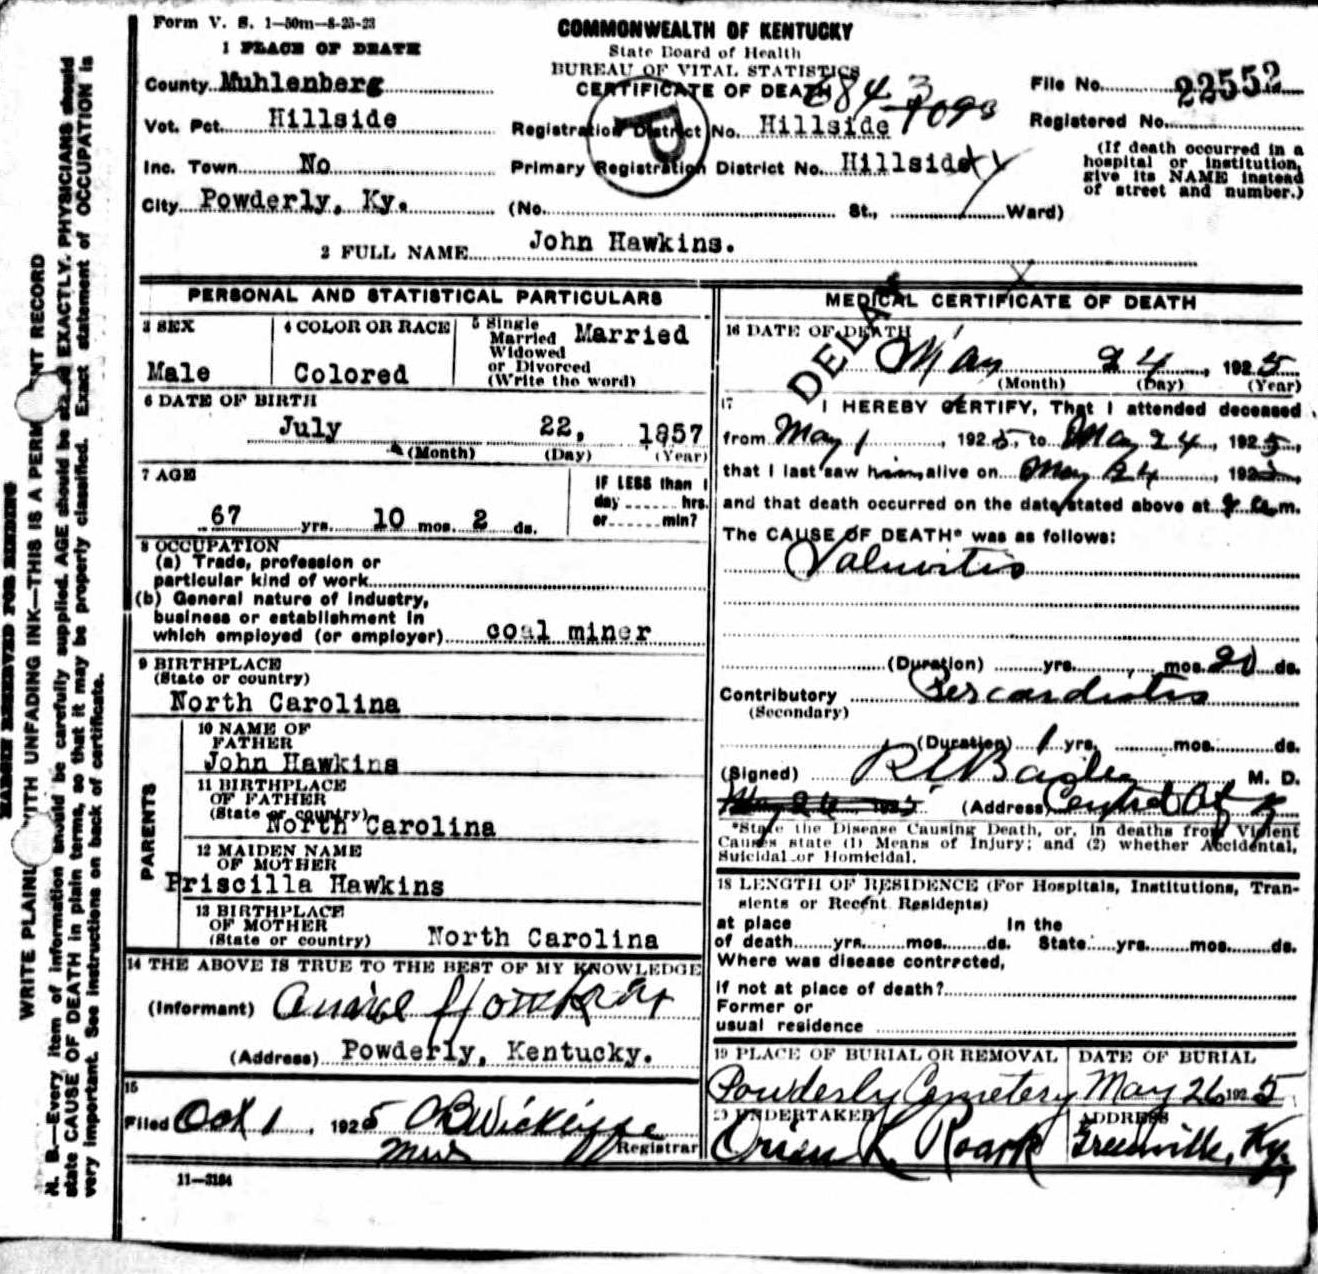 Form V. S. 1—50m—8-25-23
COMMONWEALTH OF KENTUCKY
State Board of Health
BUREAU OF VITAL STATISTICS
CERTIFICATE OF DEATH
1 PLACE OF DEATH
County Muhlenberg
Vot. Pct. Hillside
Inc. Town No
City Powderly, Ky.
6843
7093
File No. 22552
Registered No.
Registration District No. Hillside
Primary Registration District No. Hillside
P
(If death occurred in a
hospital or institution,
give its NAME instead
of street and number.)
(No. St., Ward)
2 FULL NAME John Hawkins.
PERSONAL AND STATISTICAL PARTICULARS
3 SEX
Male
4 COLOR OR RACE
Colored
5 Single
Married
Widowed
or Divorced
(Write the word)
Married
6 DATE OF BIRTH
July 22, 1857
(Month) (Day) (Year)
7 AGE
67 yrs. 10 mos. 2 ds.
IF LESS than 1
day hrs.
or min?
8 OCCUPATION
(a) Trade, profession or
particular kind of work
(b) General nature of industry,
business or establishment in
which employed (or employer) coal miner
9 BIRTHPLACE
(State or country)
North Carolina
PARENTS
10 NAME OF
FATHER
John Hawkins
11 BIRTHPLACE
OF FATHER
(State or country)
North Carolina
12 MAIDEN NAME
OF MOTHER
Priscilla Hawkins
13 BIRTHPLACE
OF MOTHER
(State or country) North Carolina
14 THE ABOVE IS TRUE TO THE BEST OF MY KNOWLEDGE
(Informant)
(Address) Powderly, Kentucky.
15
Filed Oct 1, 1925
Mrs Registrar
11—3184
MEDICAL CERTIFICATE OF DEATH
DELAY
16 DATE OF DEATH
May 24, 1925
(Month) (Day) (Year)
17 I HEREBY CERTIFY, That I attended deceased
from May 1, 1925, to May 24, 1925,
that I last saw him alive on May 24, 1925,
and that death occurred on the date stated above at a.m.
The CAUSE OF DEATH* was as follows:
Valuvitis
(Duration) yrs. mos. 20 ds.
Contributory Percardistis
(Secondary)
(Duration) 1 yrs. mos. ds.
(Signed) M. D.
May 26 1925 (Address) Central City Ky
*State the Disease Causing Death, or, in deaths from Violent
Causes state (1) Means of Injury; and (2) whether Accidental,
Suicidal or Homicidal.
18 LENGTH OF RESIDENCE (For Hospitals, Institutions, Tran-
sients or Recent Residents)
at place In the
of death yrs. mos. ds. State yrs. mos. ds.
Where was disease contracted,
If not at place of death?
Former or
usual residence
19 PLACE OF BURIAL OR REMOVAL
Powderly Cemetery
DATE OF BURIAL
May 26 1925
20 UNDERTAKER
Orien L. Roark
ADDRESS
Greenville, Ky.
MARGIN RESERVED FOR BINDING
WRITE PLAINLY WITH UNFADING INK—THIS IS A PERMANENT RECORD
N. B.—Every item of information should be carefully supplied. AGE should be stated EXACTLY. PHYSICIANS should
state CAUSE OF DEATH in plain terms, so that it may be properly classified. Exact statement of OCCUPATION is
very important. See instructions on back of certificate.